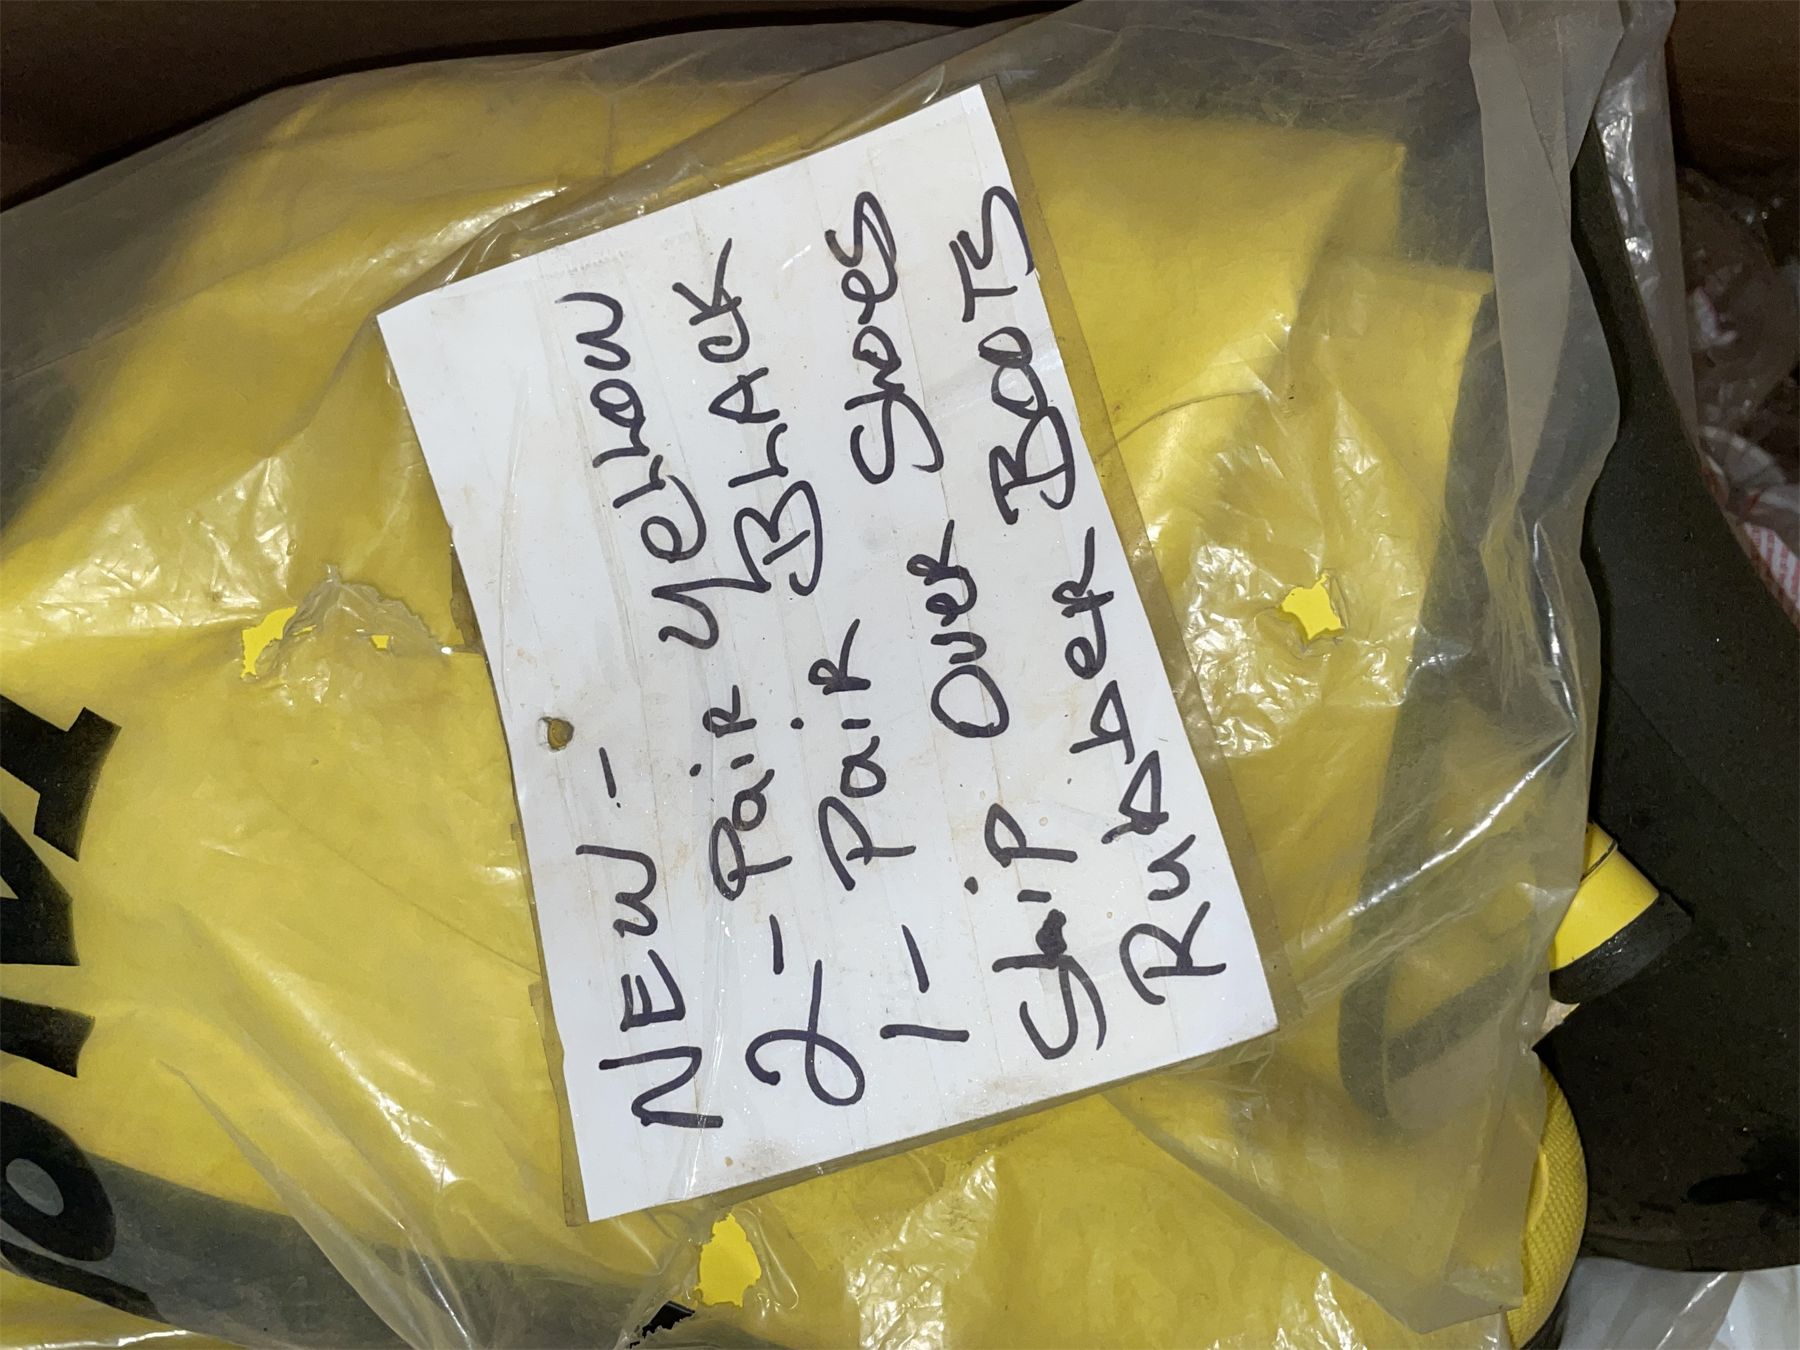 NEW -
2 - Pair Yellow
1 - Pair BLACK
SLiP Over Shoes
Rubber BOOTS